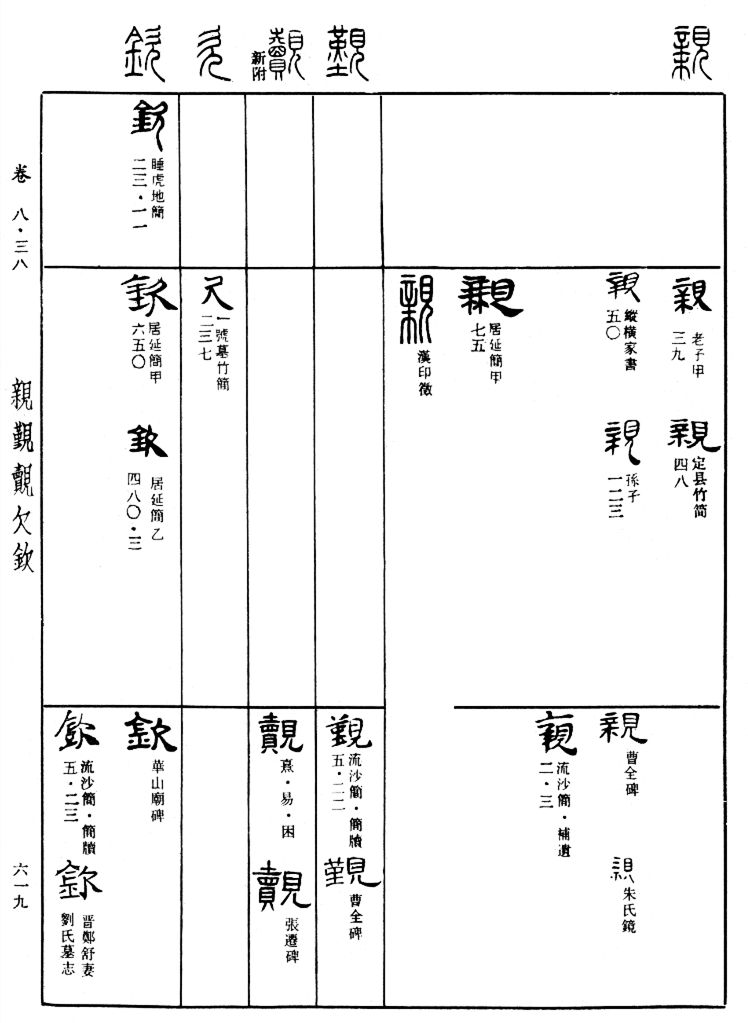 親
覲
覿
新附
欠
欽
親
老子甲
三九
親
定县竹简
四八
親
縱橫家書
五〇
親
孫子
一二三
親
曹全碑
親
朱氏鏡
親
流沙簡·補遺
二·三
親
居延簡甲
七五
親
漢印徵
覲
流沙簡·簡牘
五·二二
覲
曹全碑
覿
熹·易·困
覿
張遷碑
欠
一號墓竹簡
二三七
欽
睡虎地簡
二三·一一
欽
居延簡甲
六五〇
欽
居延簡乙
四八〇·三
欽
華山廟碑
欽
流沙簡·簡牘
五·二三
欽
晋鄭舒妻
劉氏墓志
卷 八·三八
親覲覿欠欽
六一九